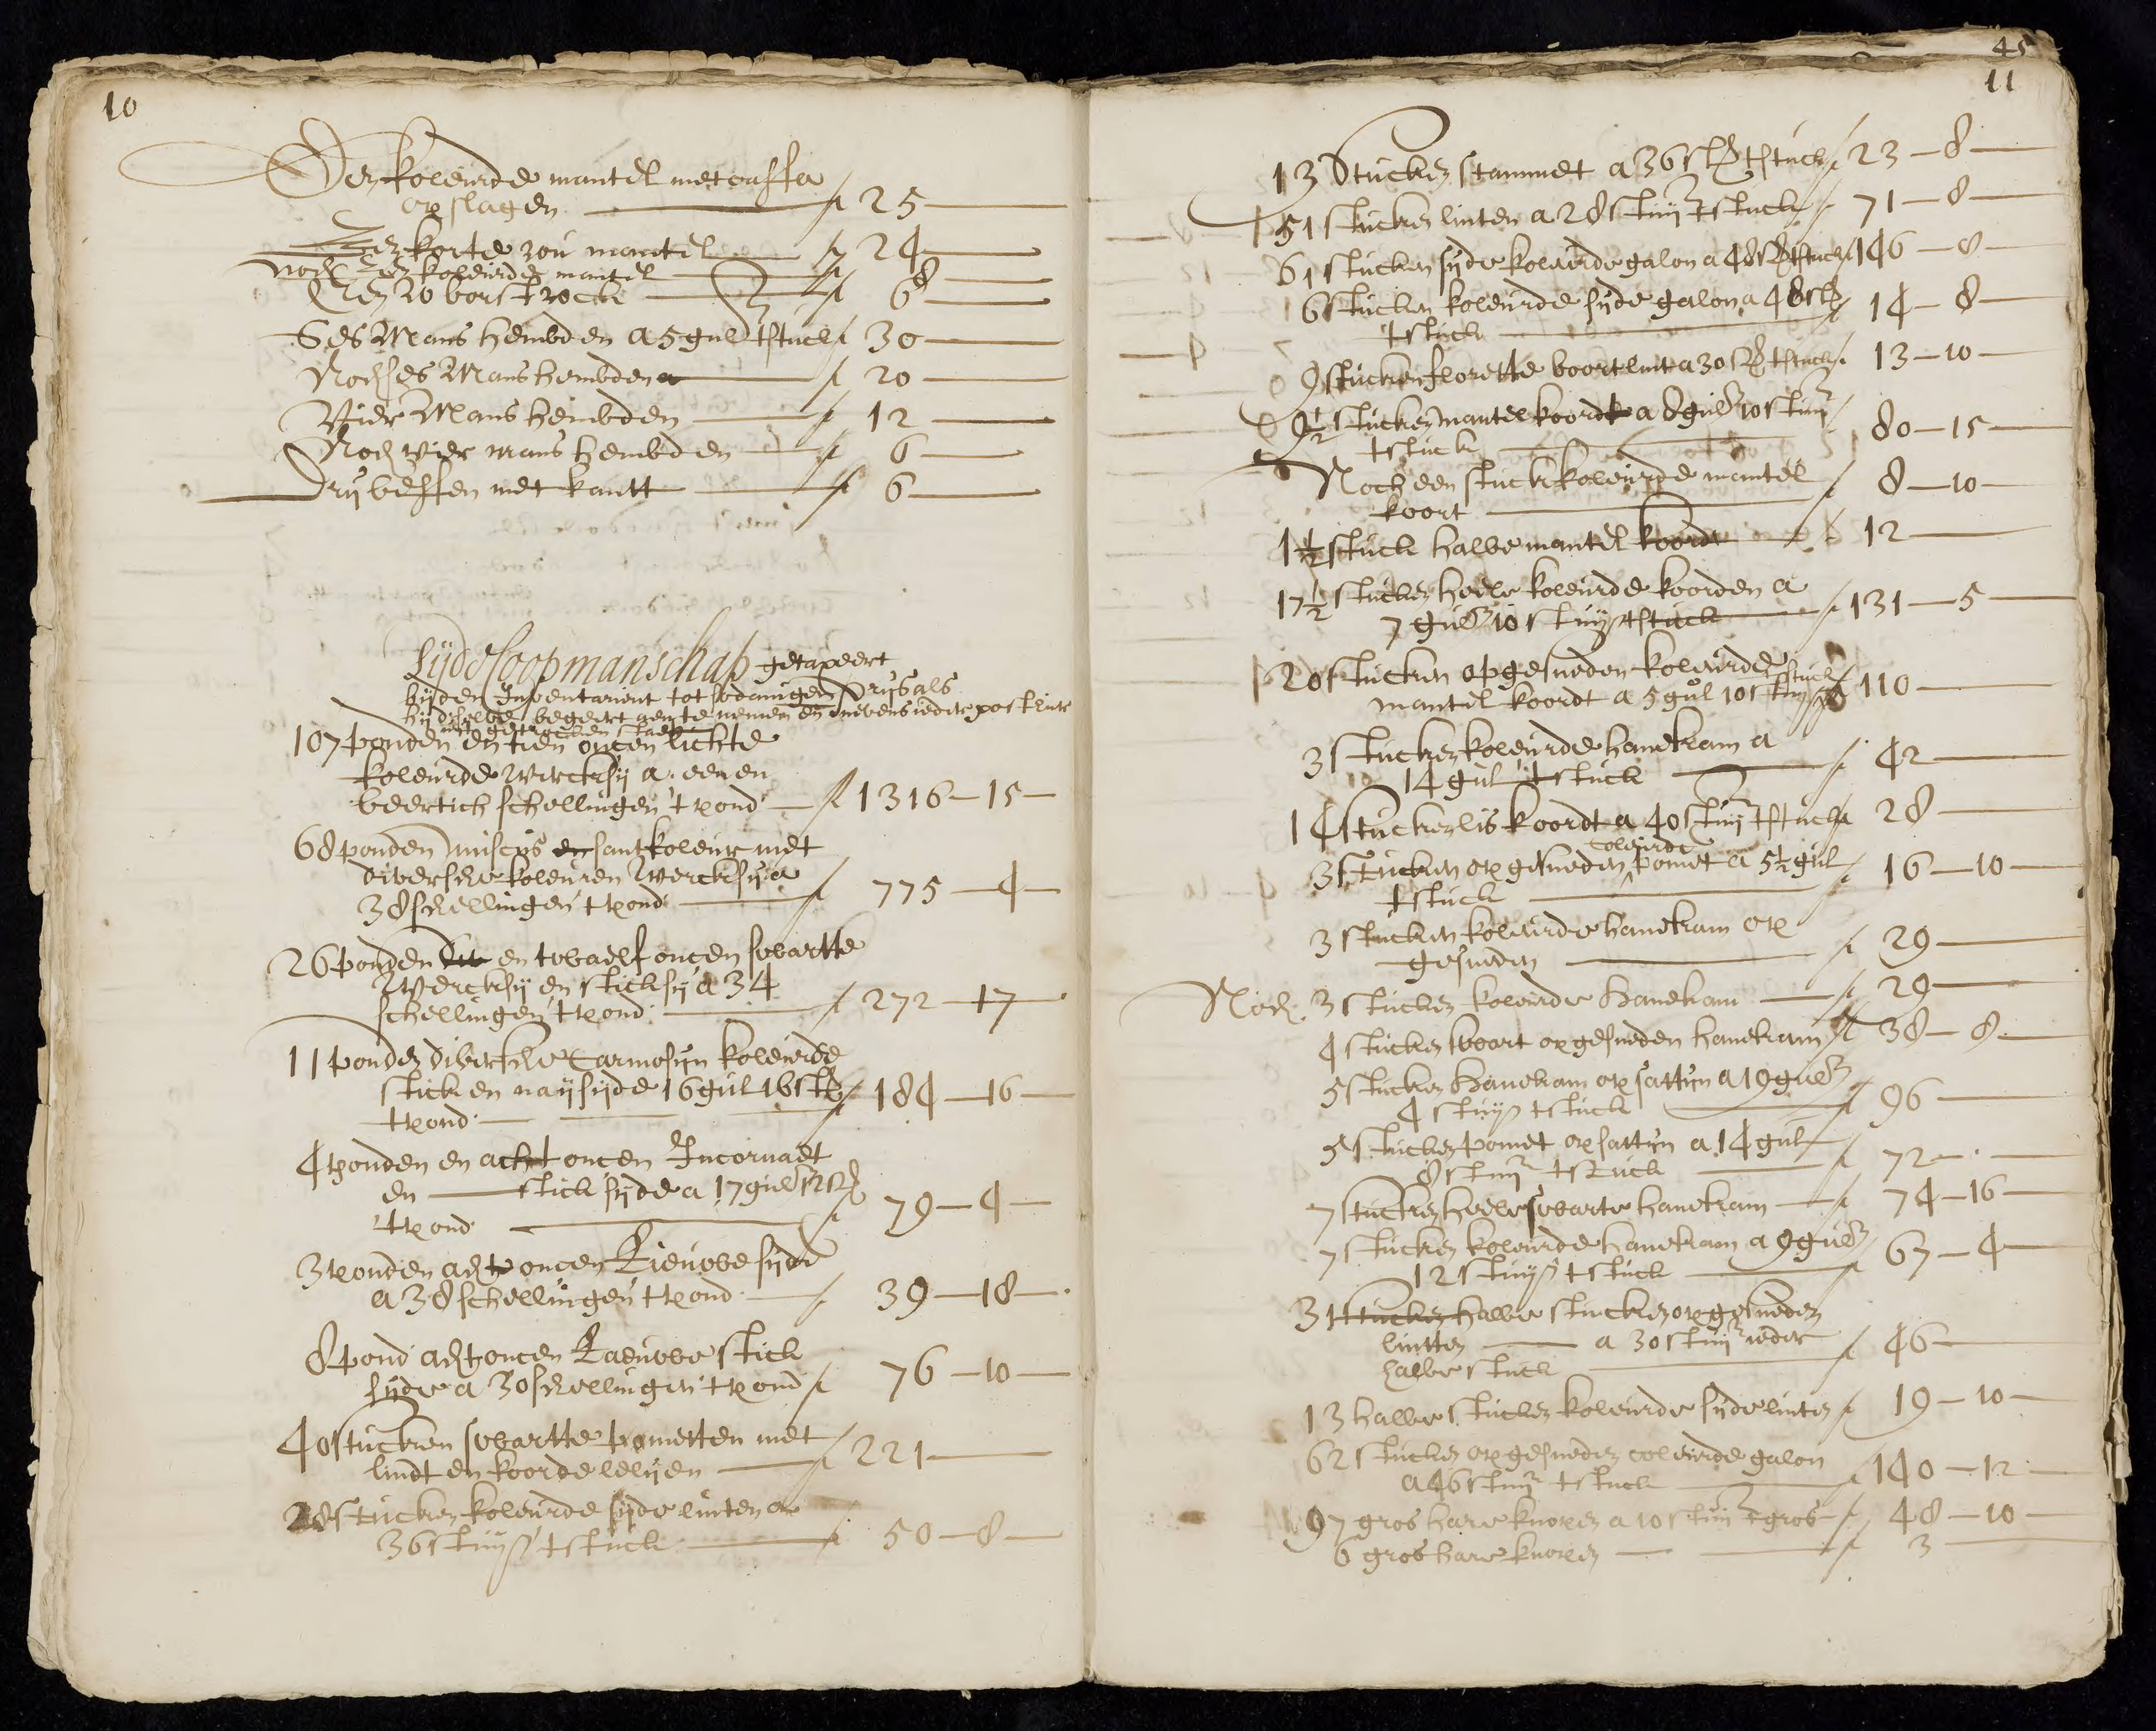 10
Een koleurde mantel met caffa
opslagen ƒ 25
Een korte rou mantel ƒ 24
Noch Een koleurde mantel ƒ 8
Een ro borstrock ƒ 6
Ses Mans hembden a 5 gul tstuck ƒ 30
Noch ses Mans hembden a ƒ 20
Vier Mans hembden ƒ 12
Noch vier mans hembden ƒ 6
Dry beffen met kantt ƒ 6
Sijde Coopmanschap getaxeert
bijden Inventarient tot sodanigen Prijs als
hij deselve begeert aen te nemen en nevens ieder post
uytgetrocken staet
107 ponden en tien oncen lichte
koleurde wercksij a een en
veertich schellingen 't pond ƒ 1316-15-
68 ponden muscus en santkoleur met
diversche koleuren werck sij a
38 schellingen 't pond ƒ 775-4-
26 ponden en twaelf oncen swartte
Wercksij en sticksij a 34
schellingen 't pond ƒ 272-17
11 ponden diversche Carmosijn koleurde
stick en naysijde 16 gul 16 st
t pond ƒ 184-16-
4 ponden en acht oncen Incornaet
en stick sijde a 17 guld 12 st
't pond ƒ 79-4-
3 ponden acht oncen Rieuwe sijde
a 38 schellingen 't pond ƒ 39-18-
8 pond acht oncen Raeuwe stick
sijde a 30 schellingen 't pond ƒ 76-10-
40 stucken swartte pometten met
lindt en koorde lelyen ƒ 221
28 stucken koleurde sijde linten a
36 stuyv tstuck ƒ 50-8-
45
11
13 Stucken stammet a 36 st tstuck ƒ 23-8-
51 stucken linten a 28 stuy tstuck ƒ 71-8-
61 stucken sijde koleurde galon a 48 st tstuck ƒ 146-8-
6 stucken koleurde sijde galon a 48 st
tstuck 14-8-
9 stucken florette boortlint a 30 st tstuck 13-10-
9½ stucken mantel koordt a 8 guld 10 stuy
tstuck 80-15-
Noch een stuck koleurde mantel
koort ƒ 8-10-
1½ stuck halve mantel koorde 12
17½ stucken heele koleurde koorden a
7 guld 10 stuyv tstuck ƒ 131-5-
20 stucken opgesneden koleurde
mantel koordt a 5 gul 10 stuy tstuck ƒ 110
3 stucken koleurde hanekam a
14 gul tstuck ƒ 42
14 stucken lis koordt a 40 stuy tstuck ƒ 28
3 stucken opgesneden coleurde pomet a 5½ gul
tstuck ƒ 16-10-
3 stucken koleurde hanekam op
gesneden ƒ 29
Noch 3 stucken koleurde hanekam ƒ 29
4 stucken swart opgesneden hanekam ƒ 38-8-
5 stucken hanekam op sattijn a 19 guld
4 stuyv tstuck ƒ 96
5 stucken pomet op sattijn a 14 gul
8 stuy tstuck ƒ 72
7 stucken heele swarte hanekam ƒ 74-16-
7 stucken koleurde hanekam a 9 guld
12 stuyv tstuck ƒ 67-4-
31 stucken halve stucken opgesneden
lintten a 30 stuy ieder
halve stuck ƒ 46
13 halve stucken koleurde sijde linten ƒ 19-10-
62 stucken opgesneden coleurde galon
a 46 stuy tstuck ƒ 140-12-
97 gros hare knopen a 10 stuy tgros ƒ 48-10-
6 gros hare knopen ƒ 3